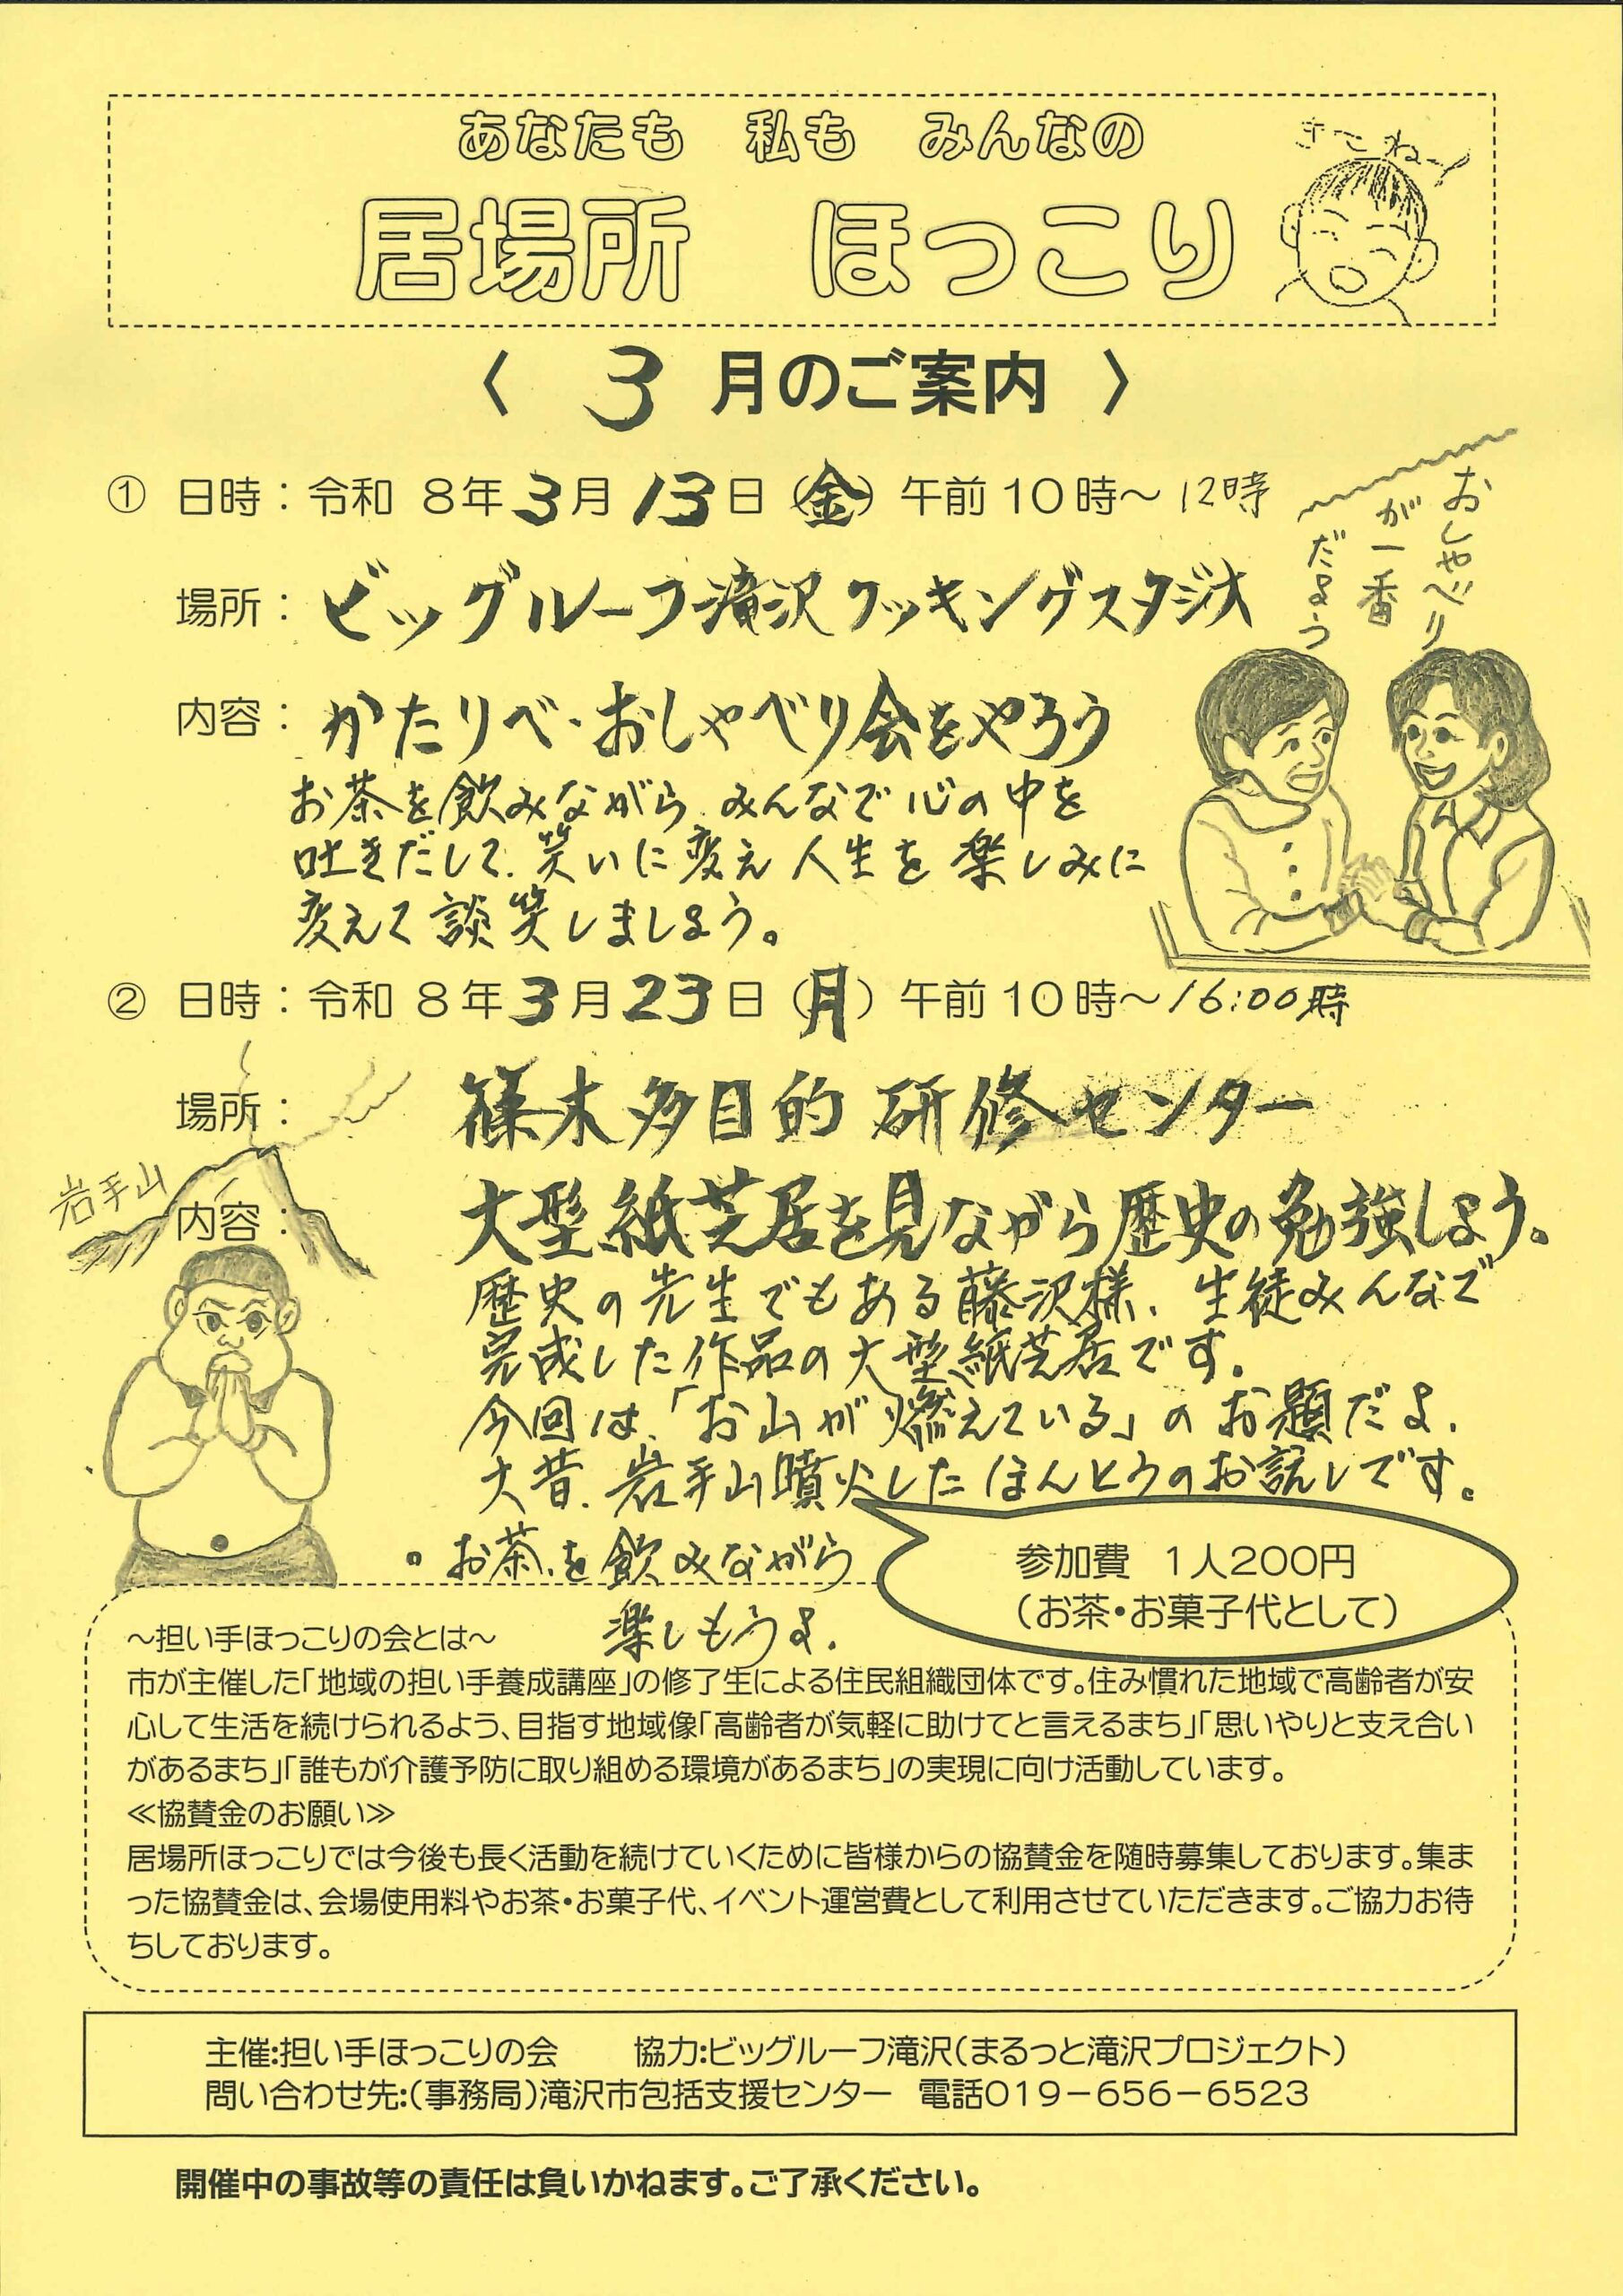 あなたも 私も みんなの
さこねー!
居場所 ほっこり
〈 3 月のご案内 〉
① 日時：令和 8年3月13日（金）午前10時～12時
おしゃべり
が一番
だよう
場所：ビッグルーフ滝沢クッキングスタジオ
内容：かたりべ・おしゃべり会をやろう
お茶を飲みながら、みんなで心の中を
吐きだして、笑いに変え人生を楽しみに
変えて談笑しましょう。
② 日時：令和 8年3月23日（月）午前10時～16:00時
場所： 篠木多目的研修センター
岩手山
内容： 大型紙芝居を見ながら歴史の勉強しよう。
歴史の先生でもある藤沢様、生徒みんなで
完成した作品の大型紙芝居です。
今回は、「お山が燃えている」のお題だよ、
大昔、岩手山噴火したほんとうのお話しです。
・お茶を飲みながら
楽しもうよ。
参加費 1人200円
（お茶・お菓子代として）
～担い手ほっこりの会とは～
市が主催した「地域の担い手養成講座」の修了生による住民組織団体です。住み慣れた地域で高齢者が安
心して生活を続けられるよう、目指す地域像「高齢者が気軽に助けてと言えるまち」「思いやりと支え合い
があるまち」「誰もが介護予防に取り組める環境があるまち」の実現に向け活動しています。
≪協賛金のお願い≫
居場所ほっこりでは今後も長く活動を続けていくために皆様からの協賛金を随時募集しております。集ま
った協賛金は、会場使用料やお茶・お菓子代、イベント運営費として利用させていただきます。ご協力お待
ちしております。
主催:担い手ほっこりの会 協力:ビッグルーフ滝沢（まるっと滝沢プロジェクト）
問い合わせ先:（事務局）滝沢市包括支援センター 電話019－656－6523
開催中の事故等の責任は負いかねます。ご了承ください。